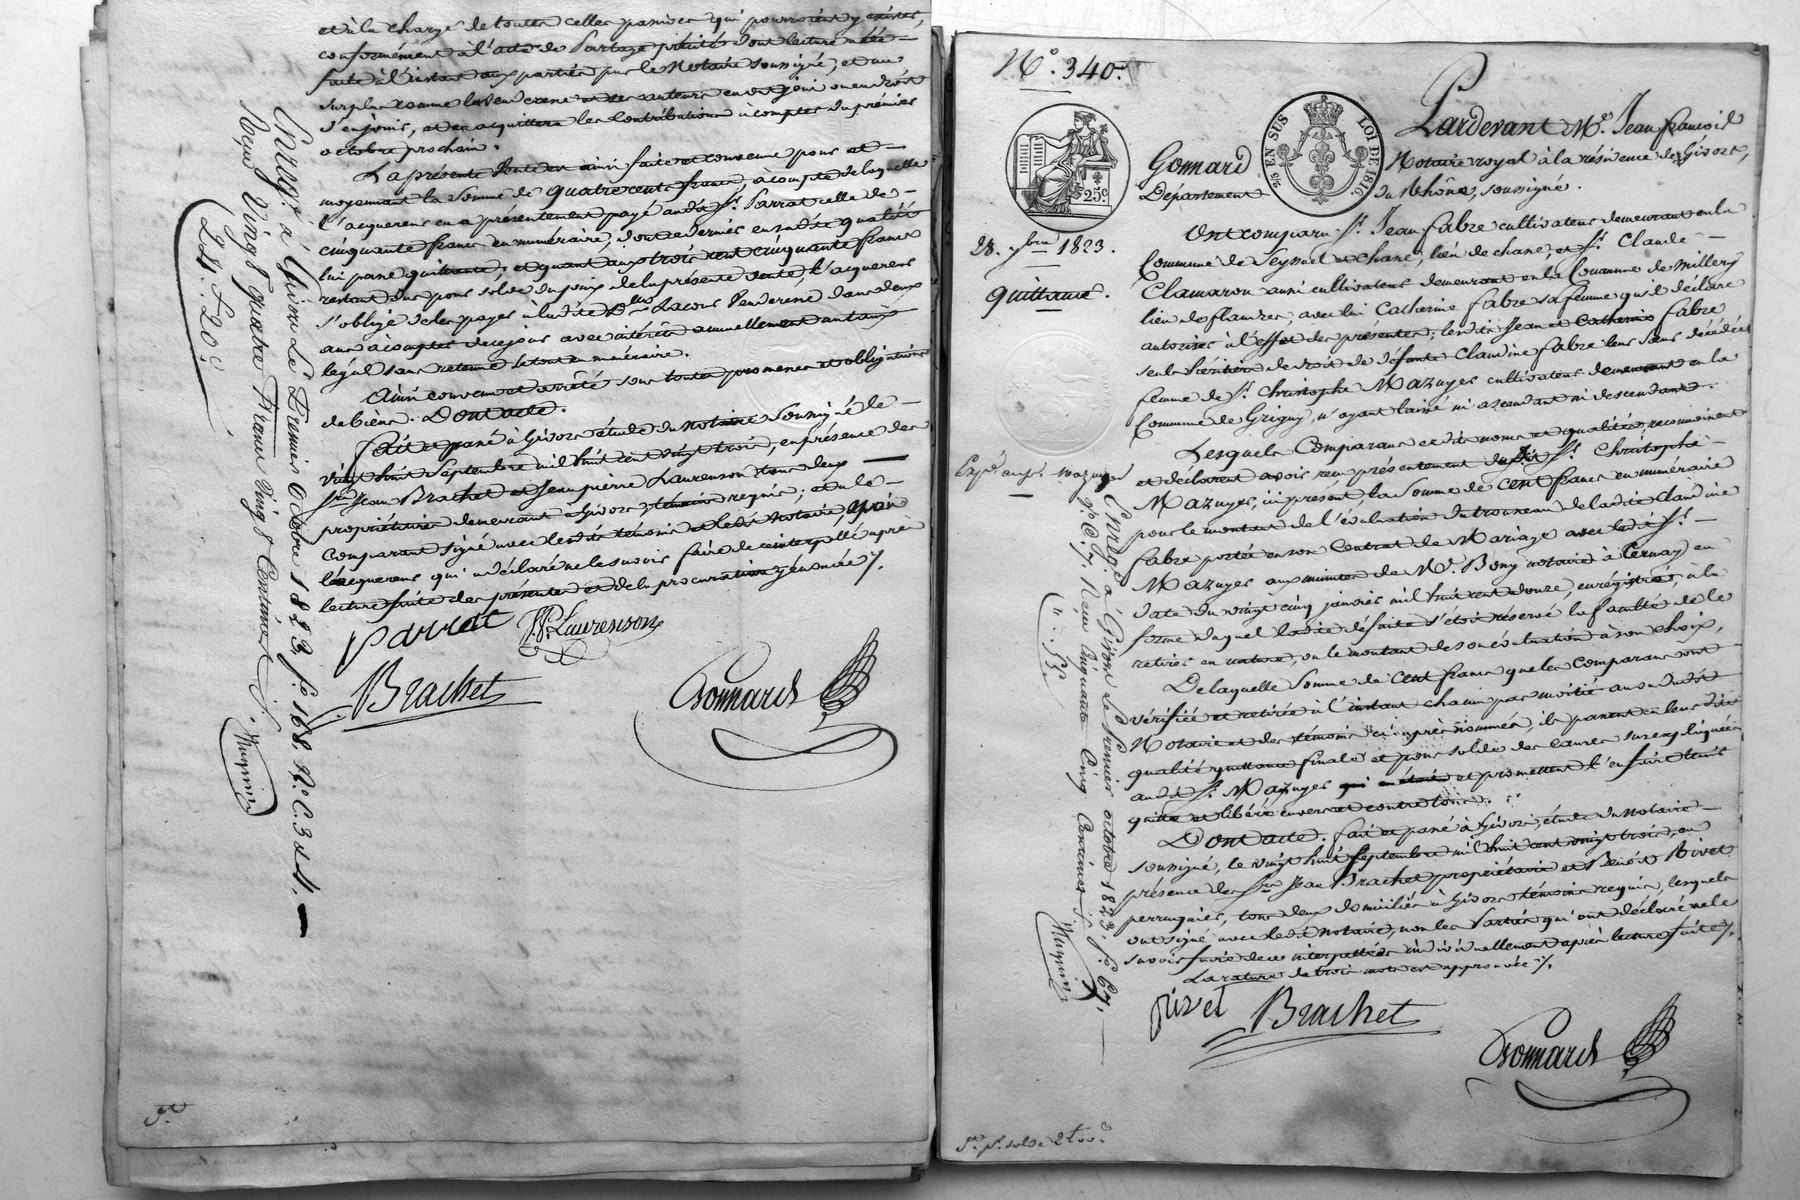 et à la charge de toutes celles passives qui pourroient y exister,
conformément à l'acte de Partage précité dont lecture a été
faite à l'instant aux parties par le Notaire soussigné, et au
surplus comme le vendeur et ses auteurs en ont joui ou eu droit
d'en jouir, et en acquittera les Contributions à compter du premier
octobre prochain.
La présente Vente est ainsi faite et convenue pour et
moyennant la Somme de quatre cents francs, à compte de laquelle
l'acquereur en a présentement payé audit Sr. Parrat celle de
cinquante francs en numéraire, dont ce dernier en sa dite qualité
lui passe quittance; et quant aux trois cent cinquante francs
restant dus pour solde du prix de la présente vente, l'acquereur
s'oblige de les payer à ladite Dlle Lacour Venderesse dans deux
ans à compter de ce jour avec intérêts annuellement au taux
légal sans retenue le tout en numéraire.
Ainsi convenu et arrêté sous toutes promesses et obligations
de biens. Dont acte.
Fait et passé à Givors étude du notaire soussigné le
vingt huit Septembre mil huit cent vingt trois, en présence des
Srs Jean Brachet et Jean pierre Laurenson tous deux
propriétaires demeurant à Givors témoins requis; et a le
Comparant signé avec lesdits témoins et ledit Notaire, non
l'acquereur qui a déclaré ne le savoir faire de ce interpellé après
lecture faite des présentes et de la procuration y énoncée /.
Parrat JP Laurenson
Brachet
Gonnard
Enreg.é à Givors Le Premier Octobre 1823, f.o 168, R.o C. 3 et 4.
Reçu Vingt quatre Francs Vingt Centimes /.
24.f 20.c
N.o 340.
Pardevant M.e Jean françois
Gonnard
Notaire royal à la résidence de Givors,
Département
du Rhône, soussigné.
EN SUS
LOI DE 1816
25c
28. 7bre 1823.
quittance.
Ont comparu Sr. Jean Fabre cultivateur demeurant en la
Commune de Seyssuel et Chane, lieu de chane, et Sr. Claude
Clamaron aussi cultivateur demeurant en la Commune de Millery
lieu de, avec lui Catherine Fabre sa femme qu'il déclare
autoriser à l'effet des présentes; lesdits Jean et Catherine Fabre
seuls héritiers de droit de défunte Claudine Fabre leur Sœur décédée
femme de Sr. Christophe Mazuyer cultivateur demeurant en la
Commune de Grigny, n'ayant laissé ni ascendant ni descendant.
Lesquels Comparans esdits noms et qualités reconnoissent
et déclarent avoir reçu présentement dudit Sr. Christophe
Mazuyer, ici présent, la Somme de cent francs en numéraire
pour le montant de l'évaluation du trousseau de ladite Claudine
Fabre portée en son Contrat de Mariage avec ledit Sr.
Mazuyer aux minutes de Me. Bony notaire à Ternay en
date du vingt cinq janvier mil huit cent douze, enrégistré, à la
forme duquel ladite défunte s'étoit réservé la faculté de le
retirer en nature, ou le montant de son évaluation à son choix,
De laquelle Somme de cent francs que les comparans ont
vérifiée et retirée à l'instant chacun par moitié au vu dudit
Notaire et des témoins ci après nommés, ils passent en leur dite
qualité quittance finale et pour solde des causes sus expliquées
audit Sr. Mazuyer et promettent l'en faire tenir
quitte et libéré envers et contre tous.
Dont acte. fait et passé à Givors, étude du notaire
soussigné, le vingt huit Septembre mil huit cent vingt trois, en
présence des Srs Jean Brachet propriétaire et Benoît Rivet
perruquier, tous deux domiciliés à Givors témoins requis, lesquels
ont signé avec ledit notaire, non les Parties qui ont déclaré ne le
savoir faire de ce interpellées individuellement après lecture faite /.
La rature de trois mots est approuvée /.
Rivet Brachet
Gonnard
Enreg.é à Givors le Premier octobre 1823, f.o 67,